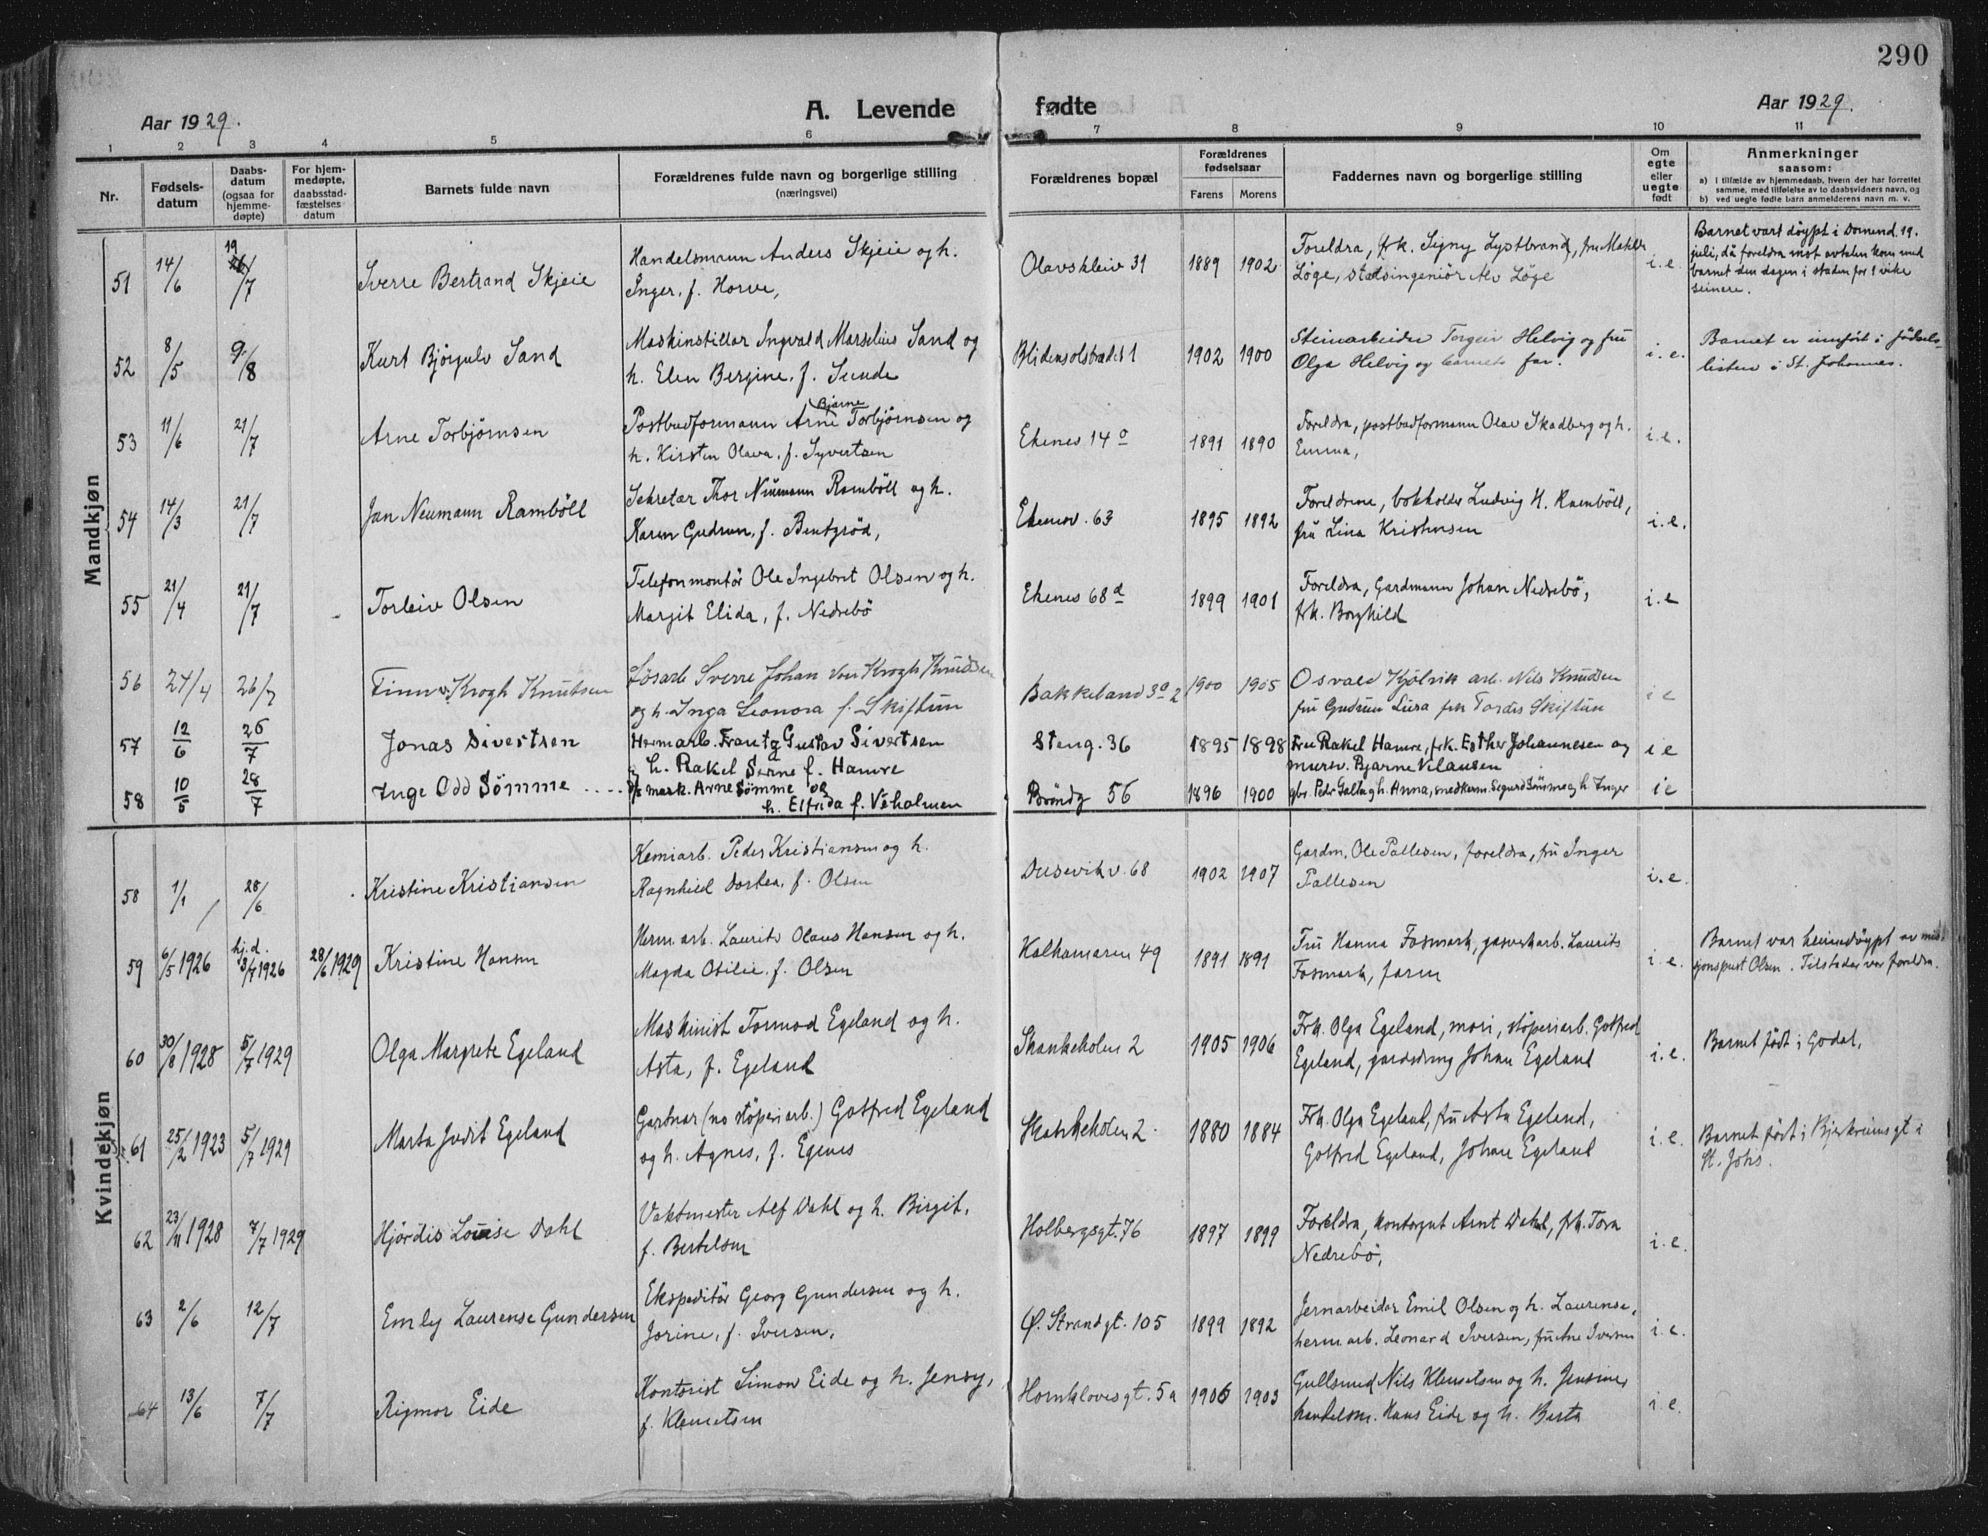 290
Aar 1929. A. Levende fødte Aar 1929.
1 2 3 4 5 6 7 8 9 10 11
Nr. Fødsels-datum Daabs-datum (ogsaa for hjemme-døpte) For hjem-medøpte, daabsstad-fæstelses datum Barnets fulde navn Forældrenes fulde navn og borgerlige stilling (næringsvei) Forældrenes bopæl Forældrenes fødselsaar Farens Morens Faddernes navn og borgerlige stilling Om egte eller uegte født Anmerkninger saasom:
a) i tilfælde av hjemmedaab, hvem der har forrettet samme, med tilføielse av to daabsvidners navn, og
b) ved uegte fødte barn anmelderens navn m. v.
Mandkjøn
51 14/6 19/7 Sverre Bertrand Skjeie Handelsmann Anders Skjeie og h. Inger, f. Horve, Olavskleiv 31 1889 1902 Foreldra, frk. Signy Lystbrand, fru Matilde Løge, stadsingeniør Alv Løge i.e. Barnet vart døypt i Domend. 19. juli, då foreldra mot avtalen kom med barnet den dagen i staden for 1 vike seinere.
52 8/5 9/8 Kurt Bjørgulv Sand Maskinstillar Ingvald Marselius Sand og h. Elen Bergine, f. Sunde Blidensolstredet 1 1902 1900 Steinarbeider Torgeir Helvig og fru Olga Helvig og barnets far. i.e. Barnet er innført i fødselslisten i St. Johannes.
53 11/6 21/7 Arne Torbjørnsen Postbudformann Arne Bjarne Torbjørnsen og h. Kirsten Olava, f. Syvertsen Ekenes 14o 1891 1890 Foreldra, postbudformann Olav Skadberg og h. Emma, i.e.
54 14/3 21/7 Jan Neumann Rambøll Sekretær Thor Neumann Rambøll og h. Karen Gudrun, f. Bentzrød, Ekenesv. 63 1895 1892 Foreldrene, bokholder Ludvig H. Rambøll, fru Lina Kristensen i.e.
55 21/4 21/7 Torleiv Olsen Telefonmontør Ole Ingebret Olsen og h. Margit Elida, f. Nedrebø Ekenes 68d 1899 1901 Foreldra, Gardmann Johan Nedrebø, frk. Borghild i.e
56 24/4 26/7 Finn v. Krogh Knutsen Løsarb Sverre Johan von Krogh Knudsen og h. Inga Leonora f. Skiftun Bakkeland 3a2 1900 1905 Osvald Kjølvik arb. Nils Knudsen fru Gudrun Lura frk Tordis Skiftun i e
57 12/6 26/7 Jonas Sivertsen Hermarb. Frantz Gustav Sivertsen og h. Rakel Serne f. Hamre Steng. 36 1895 1898 Fru Rakel Hamre, frk. Esther Johannesen og mursv. Bjarne Nilausen i e
58 10/5 28/7 Inge Odd Sømme .... mask. Arne Sømme og h. Elfrida f. Veholmen Brøndg 56 1896 1900 gbr. Peder Galta og h. Anna, smedkerm. Sigurd Sømme og h Inger i e
Kvindekjøn
58 1/1 28/6 Kristine Kristiansen Kemiarb. Peder Kristiansen og h. Ragnhild Dortea, f. Olsen Dusevikv. 68 1902 1907 Gardm. Ole Pallesen, foreldra, fru Inger Pallesen i.e.
59 6/5 1926 hj.d. 3/7 1926 28/6 1929 Kristine Hansen Herm. arb. Laurits Olaus Hansen og h. Magda Otilie, f. Olsen Kalhamaren 49 1891 1891 Fru Hanna Fosmark, gasverkarb. Laurits Fosmark, faren i.e. Barnet var heimedøypt av misjonsprest Olsen. Tilstades var foreldra.
60 30/8 1928 5/7 1929 Olga Margrete Egeland Maskinist Tormod Egeland og h. Asta, f. Egeland Skankeholen 2 1905 1906 Frk. Olga Egeland, mori, støperiarb. Gotfred Egeland, gardsdreng Johan Egeland i.e. Barnet født i Godal,
61 25/2 1923 5/7 1929 Marta Judit Egeland Gartnar (no støperiarb.) Gotfred Egeland og h. Agnes, f. Egenes Skankeholen 2. 1880 1884 Frk. Olga Egeland, fru Asta Egeland, Gotfred Egeland, Johan Egeland i.e. Barnet født i Bjerkreimsgt i St. Johs.
62 23/11 1928 7/7 1929 Hjørdis Louise Dahl Vaktmester Alf Dahl og h. Birgit, f. Bertelsen Holbergsgt. 76 1897 1899 Foreldra, kontorgut Arnt Dahl, frk. Tora Nedrebø, i.e.
63 2/6 12/7 Emly Laurense Gundersen Ekspeditør Georg Gundersen og h. Jorine, f. Iversen, Ø. Strandgt. 105 1899 1892 Jernarbeider Emil Olsen og h. Laurense, herm. arb. Leonard Iversen, fru Ane Iversen i.e.
64 13/6 7/7 Rigmor Eide Kontorist Simon Eide og h. Jensy, f. Klemetsen Hornklovesgt. 5a 1906 1903 Gullsmed Nils Klemetsen og h. Jensine, handelsm. Hans Eide og h. Berta i.e.